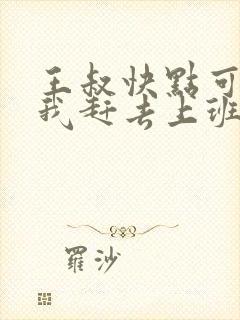 王叔快點可
我赶去上班
羅沙